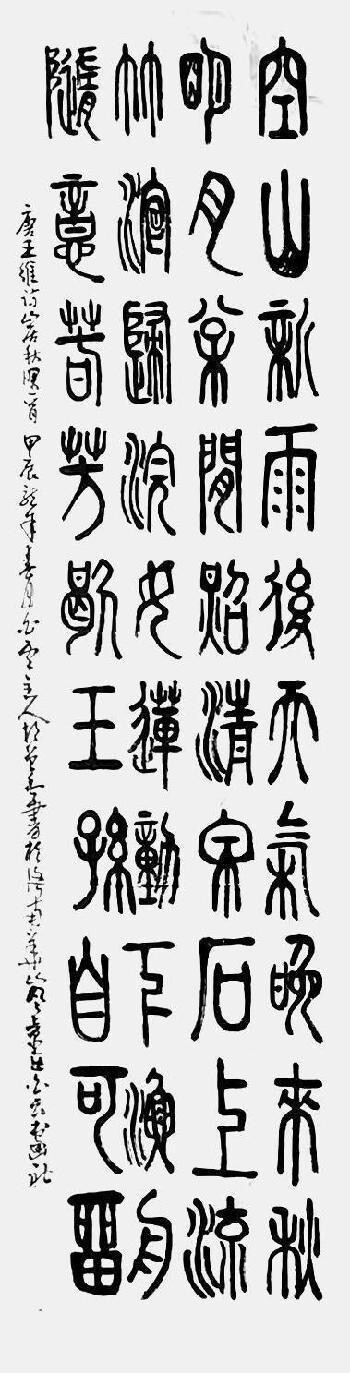 空山新雨後天氣晚來秋
明月松間照清泉石上流
竹喧歸浣女蓮動下漁舟
隨意春芳歇王孫自可留
唐王維詩山居秋暝一首 甲辰龍年春月白雲主人 書於濟南